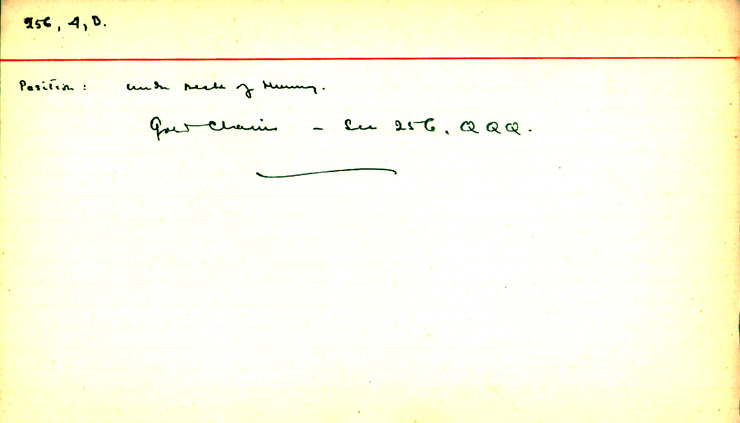 256, 4, D.
Position : under neck of Mummy.
Gold Chains – See 256, Q Q Q.